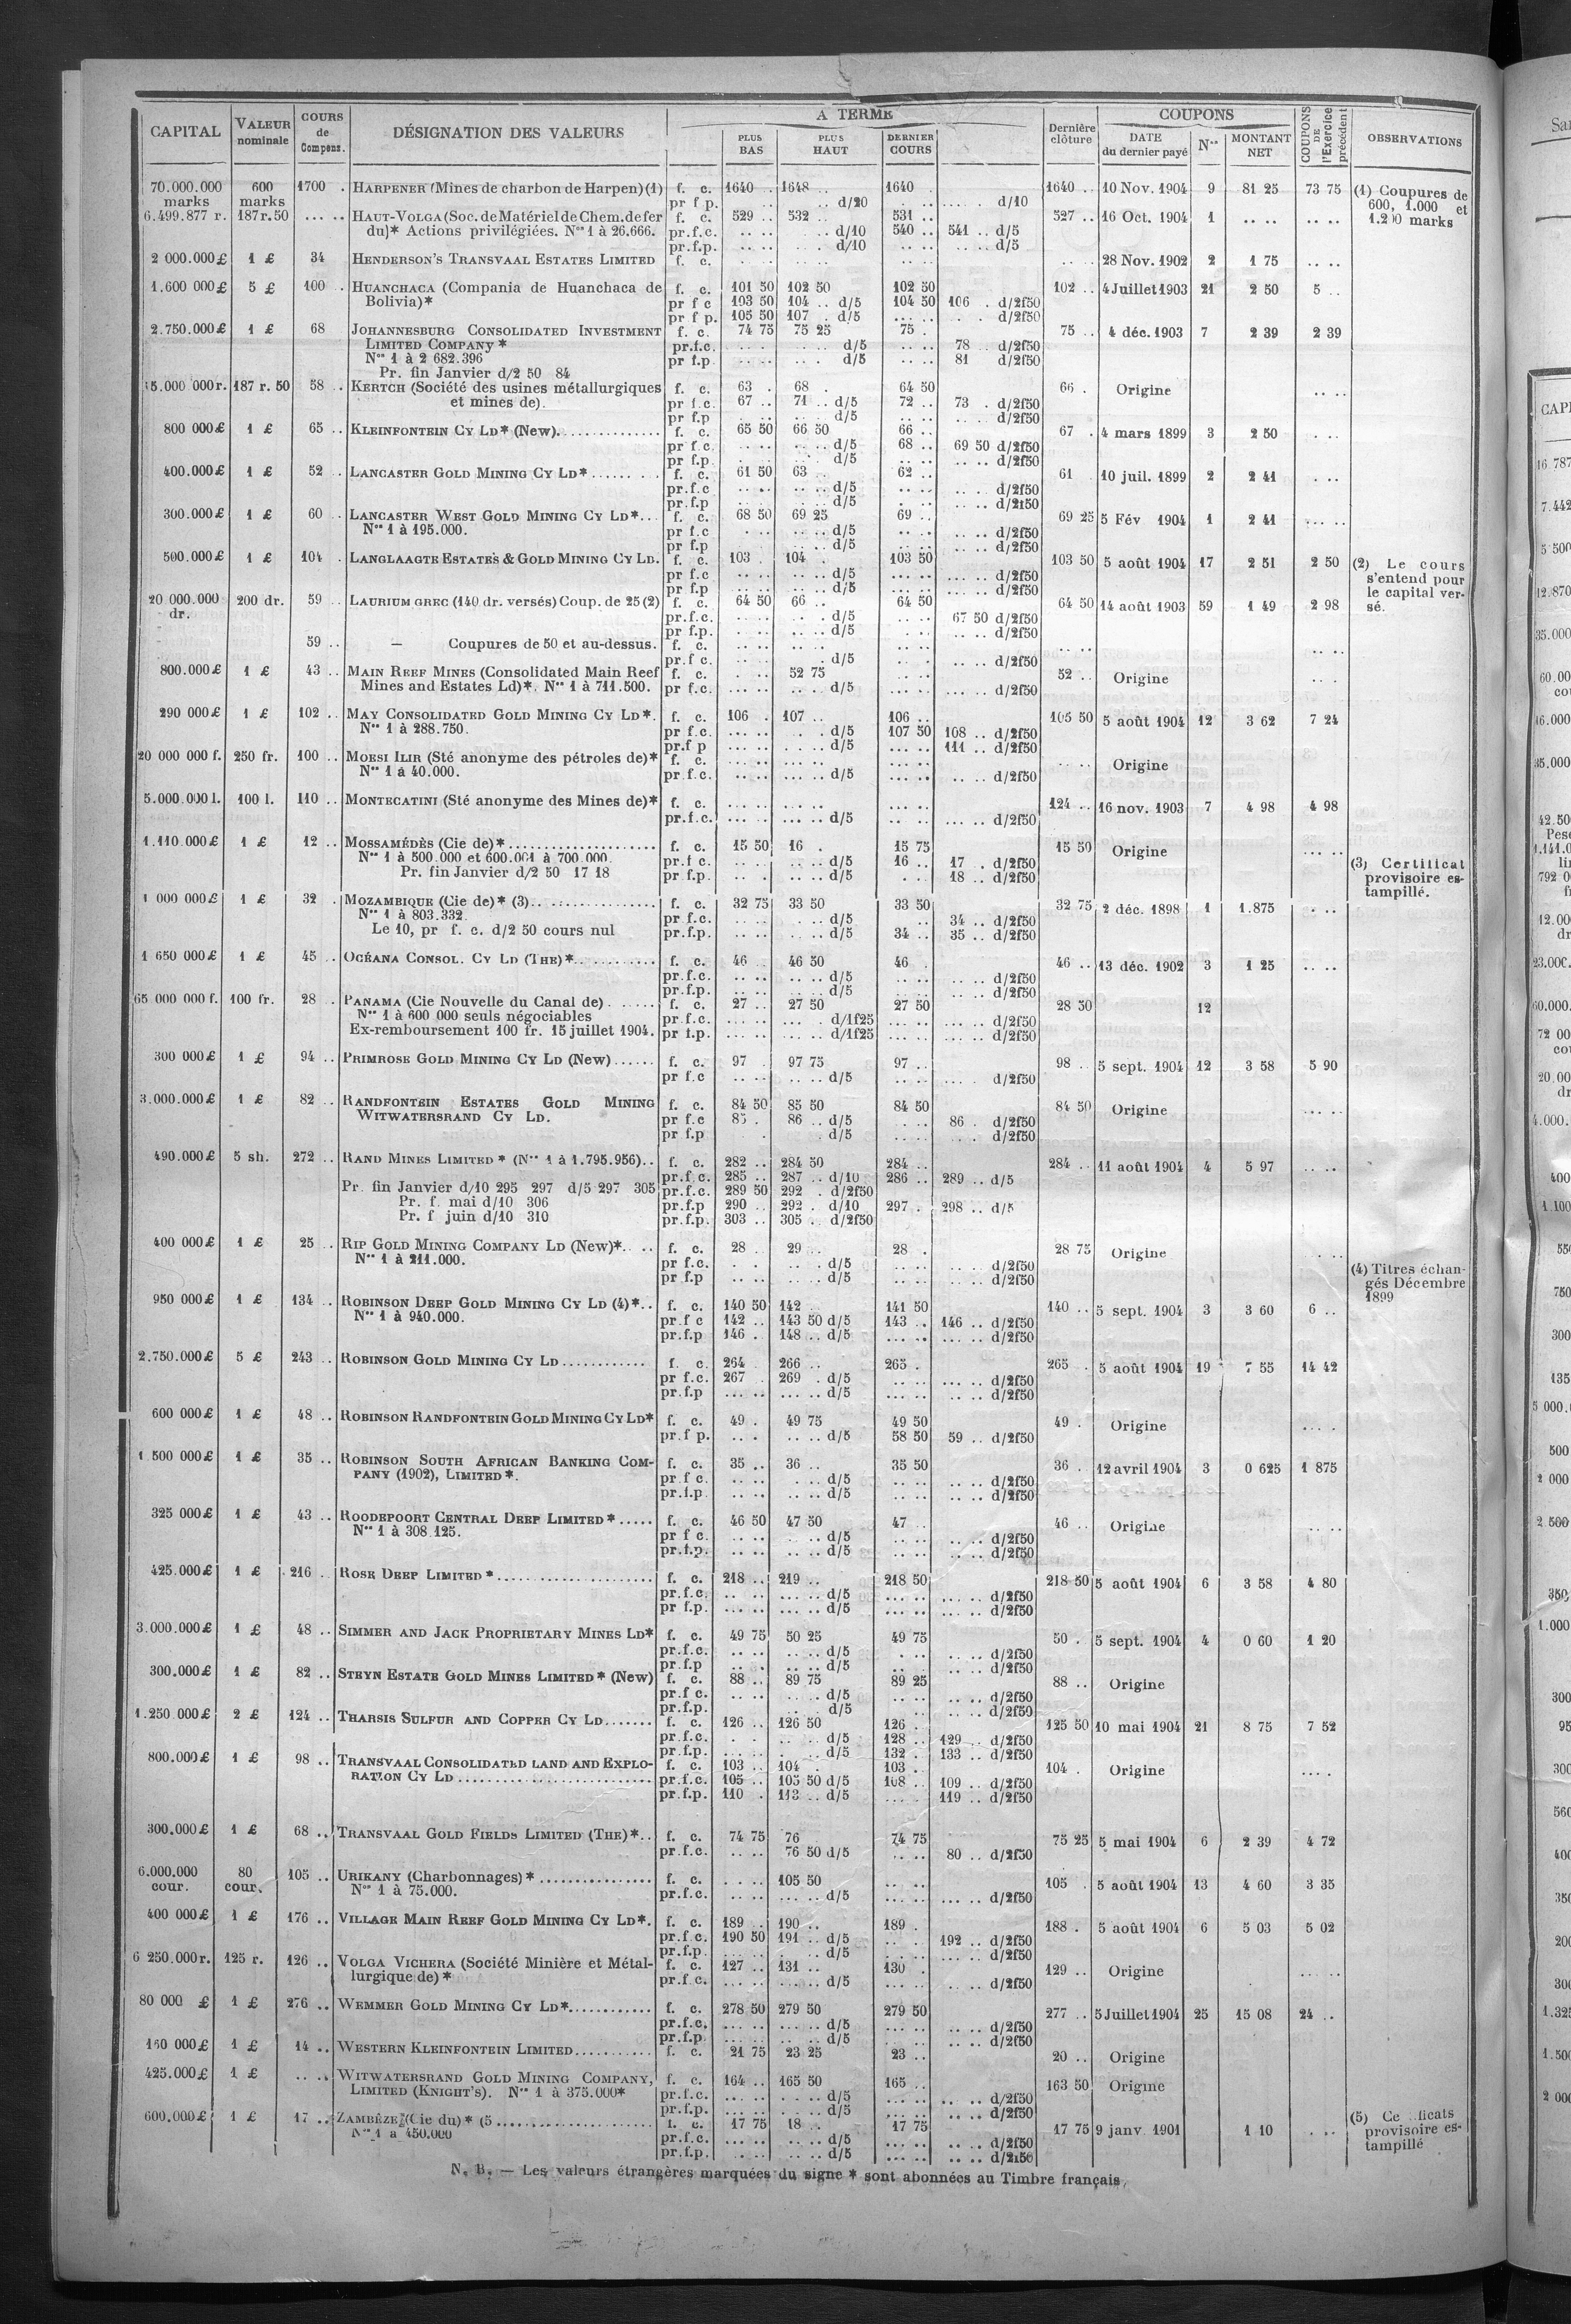 CAPITAL VALEUR nominale COURS de Compens. DÉSIGNATION DES VALEURS A TERME PLUS BAS PLUS HAUT DERNIER COURS Dernière clôture COUPONS DATE du dernier payé Nos MONTANT NET COUPONS DE l'Exercice précédent OBSERVATIONS
70.000.000 600 1700 . HARPENER (Mines de charbon de Harpen) (1) f. c. 1640 . 1648 .. 1640 . 1640 .. 10 Nov. 1904 9 81 25 73 75 (1) Coupures de
marks marks pr f p. .. d/20 d/10 600, 1.000 et
6.499.877 r. 187r.50 ... .. HAUT-VOLGA (Soc. de Matériel de Chem. de fer f. c. 529 .. 532 .. 531 .. 527 .. 16 Oct. 1904 1 .. .. .. .. 1.200 marks
du)* Actions privilégiées. Nos 1 à 26.666. pr.f.c. .. .. .. d/10 540 .. 541 .. d/5
pr.f.p. .. .. .. d/10 .. .. .. d/5
2 000.000 £ 1 £ 34 HENDERSON'S TRANSVAAL ESTATES LIMITED f. c. .. .. .. .. .. .. 28 Nov. 1902 2 1 75 .. ..
1.600 000 £ 5 £ 100 .. HUANCHACA (Compania de Huanchaca de f. c. 101 50 102 50 102 50 102 .. 4 Juillet 1903 21 2 50 5 ..
Bolivia)* pr f c 103 50 104 .. d/5 104 50 106 . d/2f50
pr f p. 105 50 107 .. d/5 ... .. d/2f50
2.750.000 £ 1 £ 68 JOHANNESBURG CONSOLIDATED INVESTMENT f. c. 74 75 75 25 75 . 75 .. 4 déc. 1903 7 2 39 2 39
LIMITED COMPANY * pr.f.c. .. d/5 .. .. 78 .. d/2f50
Nos 1 à 2 682.396 pr f.p .. d/5 .. .. 81 d/2f50
Pr. fin Janvier d/2 50 84
15.000 000 r. 187 r. 50 58 .. KERTCH (Société des usines métallurgiques f. c. 63 . 68 . 64 50 66 . Origine .. ..
et mines de). pr f.c. 67 .. 71 .. d/5 72 .. 73 . d/2f50
pr f.p .. d/5 .. .. d/2f50
800 000 £ 1 £ 65 .. KLEINFONTEIN CY LD* (New) f. c. 65 50 66 50 66 .. 67 . 4 mars 1899 3 2 50 . ..
pr f c. .. .. d/5 68 .. 69 50 d/2f50
pr f.p. .. d/5 .. .. d/2f50
400.000 £ 1 £ 52 .. LANCASTER GOLD MINING CY LD* f. c. 61 50 63 .. 62 .. 61 10 juil. 1899 2 2 41 . ..
pr.f.c .. .. d/5 .. .. d/2f50
pr.f.p .. .. d/5 .. .. d/2f50
300.000 £ 1 £ 60 .. LANCASTER WEST GOLD MINING CY LD* f. c. 68 50 69 25 69 .. 69 25 5 Fév 1904 1 2 41 ... ..
Nos 1 à 195.000. pr f.c .. .. d/5 .. .. d/2f50
pr f.p .. d/5 .. .. d/2f50
500.000 £ 1 £ 104 . LANGLAAGTE ESTATES & GOLD MINING CY LD. f. c. 103 . 104 . 103 50 103 50 5 août 1904 17 2 51 2 50 (2) Le cours
pr f.c .. .. d/5 ... .. d/2f50 s'entend pour
pr f.p .. .. d/5 ... .. d/2f50 le capital ver-
20 000.000 200 dr. 59 .. LAURIUM GREC (140 dr. versés) Coup. de 25 (2) f. c. 64 50 66 .. 64 50 64 50 14 août 1903 59 1 49 2 98 sé.
dr. pr.f.c. .. .. d/5 .. .. 67 50 d/2f50
pr f.p. .. .. d/5 .. .. d/2f50
59 .. — Coupures de 50 et au-dessus. f. c. .. .. .. .. .. ..
pr.f c. .. . d/5 .. .. d/2f50
800.000 £ 1 £ 43 .. MAIN REEF MINES (Consolidated Main Reef f. c. . .. 52 75 .. .. 52 .. Origine .. .
Mines and Estates Ld)*. Nos 1 à 711.500. pr f.c. ... .. .. d/5 ... .. d/2f50
290 000 £ 1 £ 102 .. MAY CONSOLIDATED GOLD MINING CY LD*. f. c. 106 . 107 .. 106 .. 105 50 5 août 1904 12 3 62 7 24
Nos 1 à 288.750. pr f.c. ... .. .. d/5 107 50 108 .. d/2f50
pr.f p ... .. .. d/5 ... .. 111 .. d/2f50
20 000 000 f. 250 fr. 100 .. MOESI ILIR (Sté anonyme des pétroles de)* f. c. ... .. ... .. ... .. .. .. Origine
Nos 1 à 40.000. pr.f.c. ... .. d/5 ... .. .. .. d/2f50
5.000.000 l. 100 l. 110 .. MONTECATINI (Sté anonyme des Mines de)* f. c. ... .. ... .. ... .. 124 .. 16 nov. 1903 7 4 98 4 98
pr.f.c. ... .. ... .. d/5 ... .. d/2f50
1.110.000 £ 1 £ 12 .. MOSSAMÉDÈS (Cie de)* f. c. 15 50 16 . 15 75 15 50 Origine ... ..
Nos 1 à 500.000 et 600.001 à 700.000. pr.f c. .. .. d/5 16 .. 17 . d/2f50 (3) Certificat
Pr. fin Janvier d/2 50 17 18 pr f.p. .. .. d/5 .. 18 .. d/2f50 provisoire es-
tampillé.
1 000 000 £ 1 £ 32 . MOZAMBIQUE (Cie de)* (3) f. c. 32 75 33 50 33 50 32 75 2 déc. 1898 1 1.875 . ..
Nos 1 à 803.332. pr.f.c. .. d/5 .. 34 .. d/2f50
Le 10, pr f. c. d/2 50 cours nul pr.f.p. .. .. d/5 34 .. 35 .. d/2f50
1 650 000 £ 1 £ 45 .. OCÉANA CONSOL. CY LD (THE)* f. c. 46 .. 46 50 46 . 46 .. 13 déc. 1902 3 1 25 .. ..
pr.f.c. .. .. d/5 .. .. d/2f50
pr.f.p. .. .. d/5 .. .. d/2f50
65 000 000 f. 100 fr. 28 .. PANAMA (Cie Nouvelle du Canal de) f. c. 27 .. 27 50 27 50 28 50 12
Nos 1 à 600 000 seuls négociables pr f.c. ... .. d/1f25 ... .. d/2f50
Ex-remboursement 100 fr. 15 juillet 1904. pr f.p. ... .. d/1f25 ... .. d/2f50
300 000 £ 1 £ 94 .. PRIMROSE GOLD MINING CY LD (New) f. c. 97 . 97 75 97 .. 98 .. 5 sept. 1904 12 3 58 5 90
pr f.c .. .. d/5 .. .. d/2f50
3.000.000 £ 1 £ 82 .. RANDFONTEIN ESTATES GOLD MINING f. c. 84 50 85 50 84 50 84 50 Origine ... ..
WITWATERSRAND CY LD. pr f.c 85 . 86 .. d/5 .. .. 86 . d/2f50
pr f.p . d/5 .. .. d/2f50
490.000 £ 5 sh. 272 .. RAND MINES LIMITED * (Nos 1 à 1.795.956) f. c. 282 .. 284 50 284 .. 284 .. 11 août 1904 4 5 97 .. ..
pr.f.c. 285 .. 287 .. d/10 286 .. 289 .. d/5
Pr. fin Janvier d/10 295 297 d/5 297 305 pr.f.c. 289 50 292 . d/2f50
Pr. f. mai d/10 306 pr.f.p 290 .. 292 . d/10 297 . 298 .. d/5
Pr. f juin d/10 310 pr.f.p. 303 .. 305 .. d/2f50
400 000 £ 1 £ 25 .. RIP GOLD MINING COMPANY LD (New)* f. c. 28 . 29 .. 28 . 28 75 Origine . ..
Nos 1 à 211.000. pr f.c. .. .. d/5 .. .. d/2f50 (4) Titres échan-
pr f.p .. .. d/5 .. .. d/2f50 gés Décembre
950 000 £ 1 £ 134 .. ROBINSON DEEP GOLD MINING CY LD (4)* f. c. 140 50 142 .. 141 50 140 .. 5 sept. 1904 3 3 60 6 .. 1899
Nos 1 à 940.000. pr f c 142 .. 143 50 d/5 143 .. 146 .. d/2f50
pr.f.p 146 . 148 .. d/5 ... .. d/2f50
2.750.000 £ 5 £ 243 .. ROBINSON GOLD MINING CY LD f. c. 264 . 266 .. 265 . 265 . 5 août 1904 19 7 55 14 42
pr f.c. 267 269 . d/5 .. .. d/2f50
pr.f.p ... .. ... .. d/5 .. .. d/2f50
600 000 £ 1 £ 48 .. ROBINSON RANDFONTEIN GOLD MINING CY LD* f. c. 49 . 49 75 49 50 49 . Origine ... .
pr.f p. .. .. d/5 58 50 59 .. d/2f50
1 500 000 £ 1 £ 35 .. ROBINSON SOUTH AFRICAN BANKING COM- f. c. 35 .. 36 .. 35 50 36 . 12 avril 1904 3 0 625 1 875
PANY (1902), LIMITED *. pr f c. .. .. d/5 .. .. d/2f50
pr.f.p. .. .. d/5 .. .. d/2f50
325 000 £ 1 £ 43 .. ROODEPOORT CENTRAL DEEP LIMITED * f. c. 46 50 47 50 47 .. 46 .. Origine .. ..
Nos 1 à 308.125. pr f c. .. .. d/5 .. .. d/2f50
pr.f.p. .. .. d/5 .. .. d/2f50
425.000 £ 1 £ 216 .. ROSE DEEP LIMITED * f. c. 218 .. 219 .. 218 50 218 50 5 août 1904 6 3 58 4 80
pr.f.c. .. .. ... .. d/5 ... .. d/2f50
pr f.p. ... .. ... .. d/5 ... .. d/2f50
3.000.000 £ 1 £ 48 .. SIMMER AND JACK PROPRIETARY MINES LD* f. c. 49 75 50 25 49 75 50 . 5 sept. 1904 4 0 60 1 20
pr.f.c. .. .. d/5 .. .. d/2f50
pr.f.p .. .. d/5 .. .. d/2f50
300.000 £ 1 £ 82 .. STEYN ESTATE GOLD MINES LIMITED * (New) f. c. 88 .. 89 75 89 25 88 .. Origine
pr.f c. .. .. d/5 .. .. d/2f50
pr.f.p. .. d/5 .. .. d/2f50
1.250 000 £ 2 £ 124 .. THARSIS SULFUR AND COPPER CY LD f. c. 126 .. 126 50 126 . 125 50 10 mai 1904 21 8 75 7 52
pr.f.c. .. .. d/5 128 .. 129 .. d/2f50
pr.f.p. .. .. d/5 132 . 133 .. d/2f50
800.000 £ 1 £ 98 .. TRANSVAAL CONSOLIDATED LAND AND EXPLO- f. c. 103 .. 104 . 103 .. 104 . Origine ... .
RATION CY LD pr.f.c. 105 .. 105 50 d/5 108 .. 109 .. d/2f50
pr.f.p. 110 . 113 .. d/5 ... . 119 .. d/2f50
300.000 £ 1 £ 68 .. TRANSVAAL GOLD FIELDS LIMITED (THE)* f. c. 74 75 76 74 75 75 25 5 mai 1904 6 2 39 4 72
pr.f.c. .. .. 76 50 d/5 .. .. 80 .. d/2f50
6.000.000 80 105 .. URIKANY (Charbonnages) * f. c. .. .. 105 50 .. .. 105 . 5 août 1904 13 4 60 3 35
cour. cour. Nos 1 à 75.000. pr.f.c. ... .. ... .. d/5 ... .. d/2f50
400 000 £ 1 £ 176 .. VILLAGE MAIN REEF GOLD MINING CY LD*. f. c. 189 .. 190 .. 189 . 188 . 5 août 1904 6 5 03 5 02
pr.f.c. 190 50 191 .. d/5 .. . 192 .. d/2f50
pr.f.p .. .. d/5 .. .. d/2f50
6 250.000 r. 125 r. 126 .. VOLGA VICHERA (Société Minière et Métal- f. c. 127 .. 131 .. 130 . 129 .. Origine ... ..
lurgique de) * pr.f c. ... .. ... .. d/5 ... .. d/2f50
80 000 £ 1 £ 276 .. WEMMER GOLD MINING CY LD* f. c. 278 50 279 50 279 50 277 .. 5 Juillet 1904 25 15 08 24 ..
pr.f.c. ... .. ... .. d/5 ... .. d/2f50
pr.f.p ... .. .. d/5 ... .. d/2f50
160 000 £ 1 £ 14 .. WESTERN KLEINFONTEIN LIMITED f. c. 21 75 23 25 23 .. 20 .. Origine
425.000 £ 1 £ .. .. WITWATERSRAND GOLD MINING COMPANY, f. c. 164 .. 165 50 165 .. 163 50 Origine
LIMITED (KNIGHT'S). Nos 1 à 375.000* pr.f.c. ... .. .. d/5 ... .. d/2f50
pr.f.p. ... .. .. d/5 ... .. d/2f50
600.000 £ 1 £ 17 .. ZAMBÈZE (Cie du) * (5 f. c. 17 75 18 .. 17 75 17 75 9 janv. 1901 1 10 . .. (5)
Nos 1 à 450.000 pr.f.c. ... .. .. d/5 ... .. d/2f50 provisoire es-
pr.f.p. ... .. .. d/5 ... .. d/2f50 tampillé
N. B. — Les valeurs étrangères marquées du signe * sont abonnées au Timbre français.